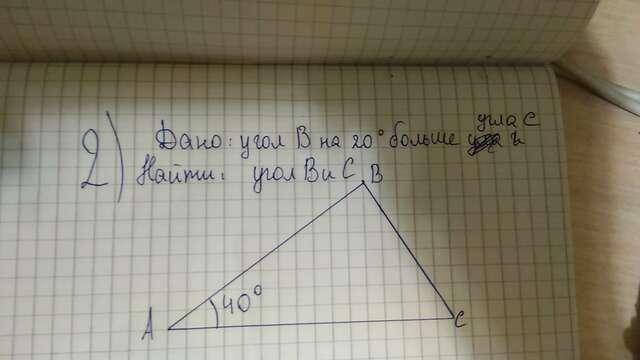 2) Дано: угол B на 20° больше угла C
Найти: угол B и C
B
40°
A
C